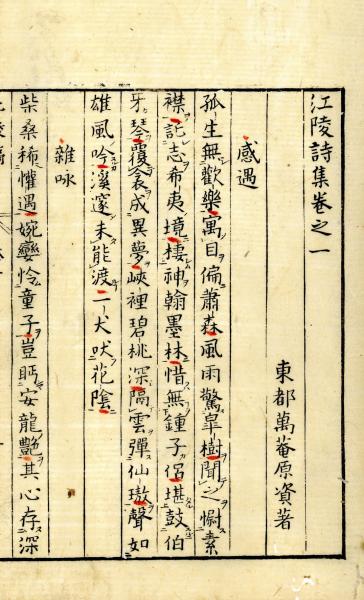 江陵詩集卷之一
東都萬菴原資著
感遇
孤生無歡樂寓目偏蕭森風雨驚皐樹聞之惻素
襟託志希夷境棲神翰墨林惜無鍾子侶堪鼓伯
牙琴覆衾成異夢峽裡碧桃深隔雲彈仙璈聲如
雄風吟溪邃未能渡二犬吠花陰
雜咏
柴桑稀懽遇婉孌怜童子豈眄安龍艷其心存深